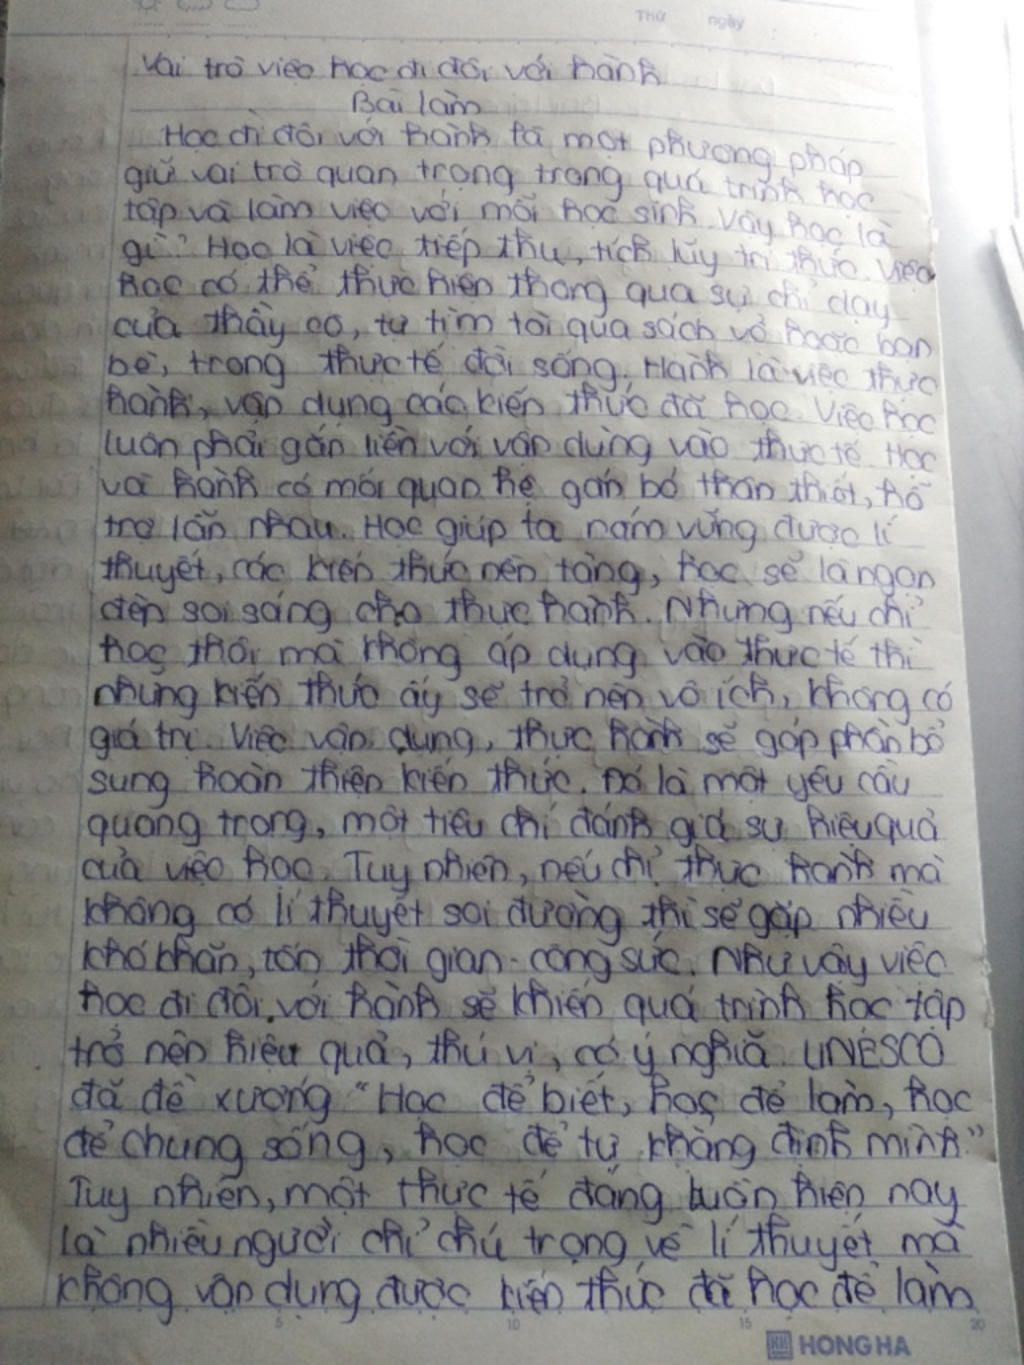 Thứ ngày
Vai trò việc học đi đôi với hành
Bài làm
Học đi đôi với hành là một phương pháp
giữ vai trò quan trọng trong quá trình học
tập và làm việc với mỗi học sinh. Vậy học là
gì? Học là việc tiếp thu, tích lũy tri thức. Việc
học có thể thực hiện thong qua sự chỉ dạy
của thầy cô, tự tìm tòi qua sách vở hoặc bạn
bè, trong thực tế đời sống. Hành là việc thực
hành, vận dụng các kiến thức đã học. Việc học
luôn phải gắn liền với vận dùng vào thực tế. Học
và hành có mối quan hệ gắn bó thân thiết, hỗ
trợ lẫn nhau. Học giúp ta nắm vững được lí
thuyết, các kiến thức nền tảng, học sẽ là ngọn
đèn soi sáng cho thực hành. Nhưng nếu chỉ
học thôi mà không áp dụng vào thực tế thì
những kiến thức ấy sẽ trở nên vô ích, không có
giá trị. Việc vận dụng, thực hành sẽ góp phần bổ
sung hoàn thiện kiến thức. Đó là một yếu cầu
quang trọng, một tiêu chí đánh giá sự hiệu quả
của việc học. Tuy nhiên, nếu chỉ thực hành mà
không có lí thuyết soi đường thì sẽ gặp nhiều
khó khăn, tốn thời gian - công sức. Như vậy việc
học đi đôi với hành sẽ khiến quá trình học tập
trở nên hiệu quả, thú vị, có ý nghĩa. UNESCO
đã đề xướng "Học để biết, học để làm, học
để chung sống, học để tự khẳng định mình"
Tuy nhiên, một thực tế đáng buồn hiện nay
là nhiều người chỉ chú trọng về lí thuyết mà
không vận dụng được kiến thức đã học để làm
5 10 15 20
HONG HA